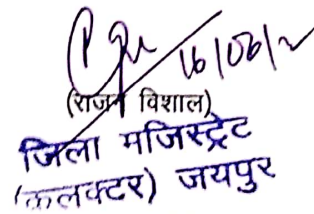 16/06/2
(राजन विशाल)
जिला मजिस्ट्रेट
(कलक्टर) जयपुर